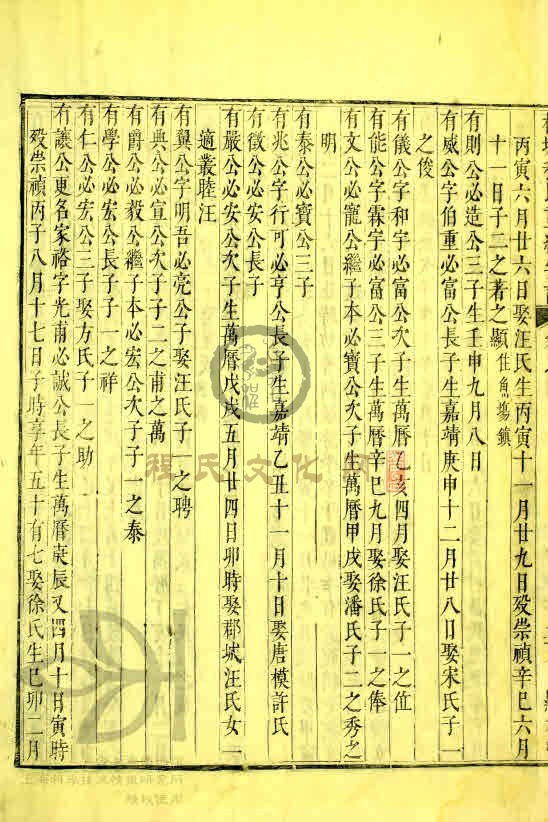 丙寅六月廿六日娶汪氏生丙寅十一月廿九日歿崇禎辛巳六月
十一日子二之著之顯住魚塢鎮
有則公必造公三子生壬申九月八日
有威公字伯重必富公長子生嘉靖庚申十二月廿八日娶宋氏子一
之俊
有儀公字和宇必富公次子生萬曆乙亥四月娶汪氏子一之位
有能公字霖宇必富公三子生萬曆辛巳九月娶徐氏子一之俸
有文公必寵公繼子本必寶公次子生萬曆甲戌娶潘氏子二之秀之
明
有泰公必寶公三子
有兆公字行可必亨公長子生嘉靖乙丑十一月十日娶唐模許氏
有徵公必安公長子
有嚴公必安公次子生萬曆戊戌五月廿四日卯時娶郡城汪氏女一
適叢睦汪
有翼公字明吾必亮公子娶汪氏子一之聘
有典公必宣公次子子二之甫之萬
有爵公必毅公繼子本必宏公次子子一之泰
有學公必宏公長子子一之祥
有仁公必宏公三子娶方氏子一之助
有讓公更名家裕字光甫必誠公長子生萬曆庚辰又四月十日寅時
歿崇禎丙子八月十七日子時享年五十有七娶徐氏生己卯二月
程氏文化网